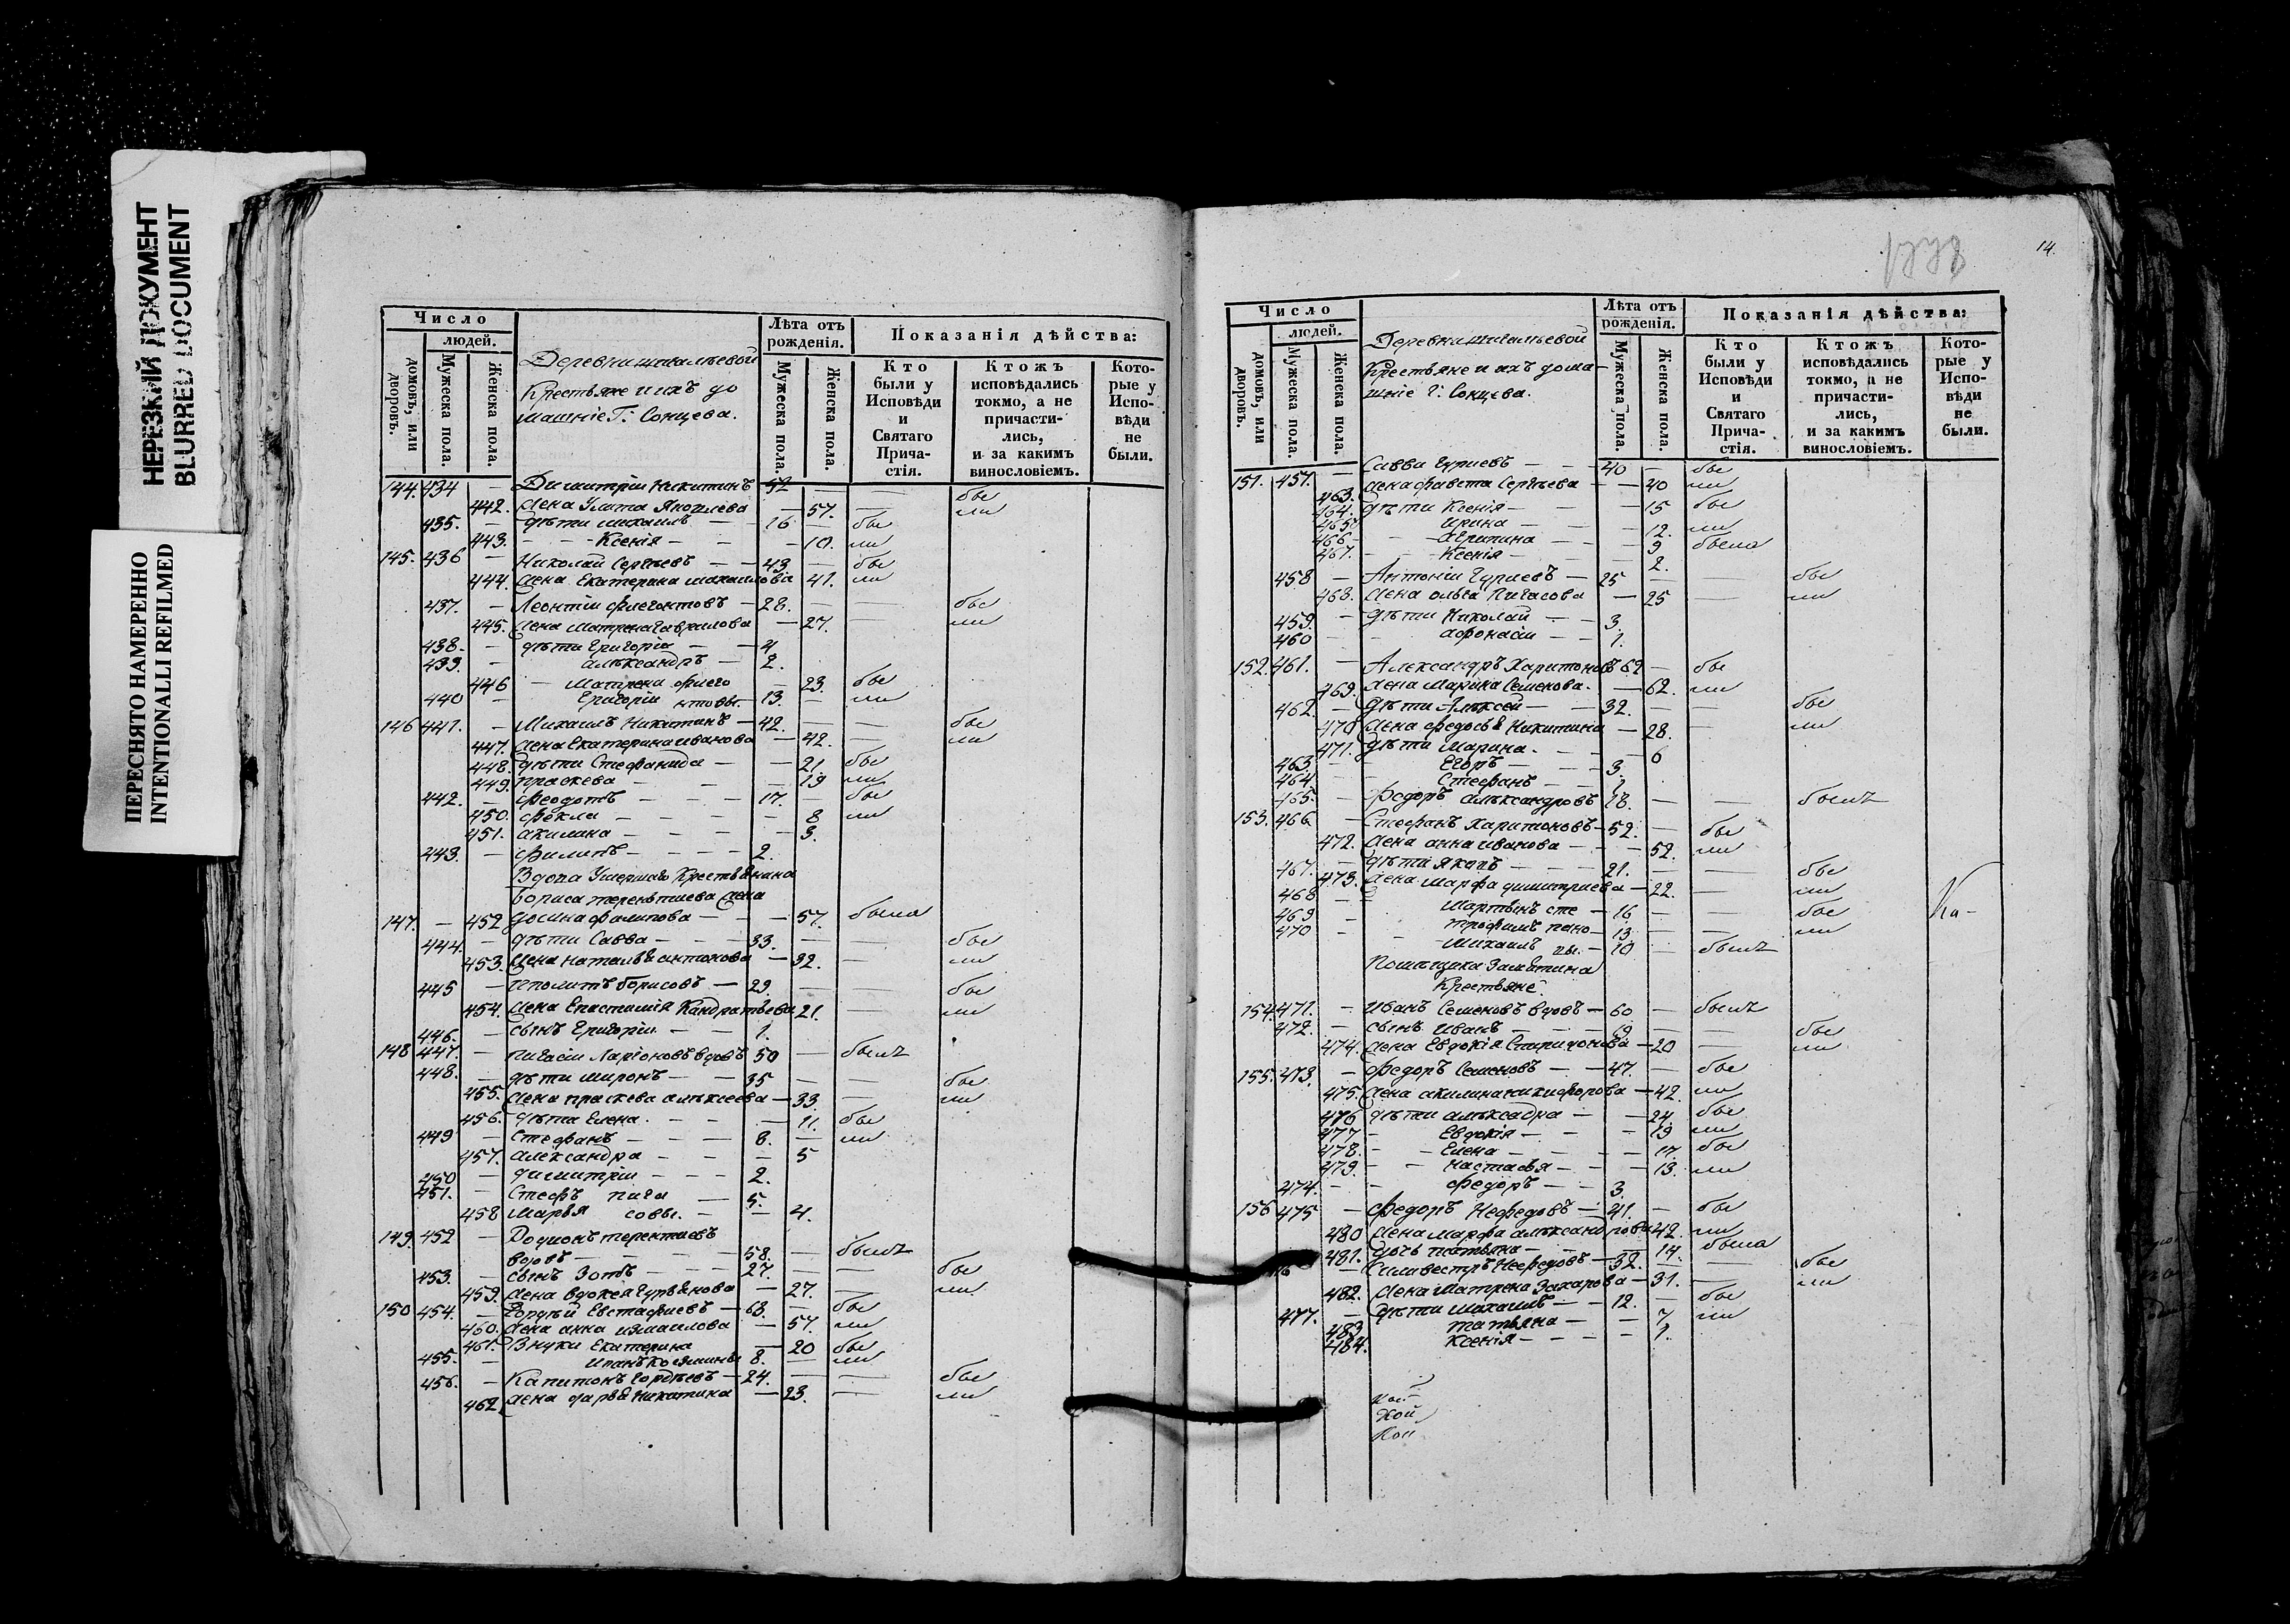 НЕРЕЗКИЙ ДОКУМЕНТ
BLURRED DOCUMENT
ПЕРЕСНЯТО НАМЕРЕННО
INTENTIONALLI REFILMED
Число
людей.
домовъ, или дворовъ.
Мужеска пола.
Женска пола.
Деревни
Крестьяне и ихъ до
машніе Г: Сонцева.
Лѣта отъ рожденія.
Мужеска пола.
Женска пола.
Показанія дѣйства:
Кто были у Исповѣди и Святаго Прича-стія.
Ктожъ исповѣдались токмо, а не причасти-лись, и за какимъ винословіемъ.
Кото-рые у Испо-вѣди не были.
144. 434 — Димитрій Никитинъ 52 — — бы
442. Жена Улита Яковлева — 57. — ли
435. — дѣти Михаилъ — 16 — бы
443. — Ксенія — 10. ли
145. 436 — Николай Сергѣевъ — 43 — бы
444. Жена Екатерина Михаилова 41. ли
437. — Леонтій Флегонтовъ — 28. — — бы
445. Жена Матрена Гаврилова — 27. — ли
438. — дѣти Григорій — 4
439. — Александръ — 2.
446 — Матрена Флего — 23. бы
440 — Григорій нтовы. — 13. — ли
146 441. — Михаилъ Никитинъ — 42. — — бы
447. Жена Екатерина Иванова — 42. — ли
448. дѣти Стефанида — 21. бы
449. Праскева — 19 ли
442. — Феодотъ — 17. — бы
450. Фекла — 8 ли
451. Акилина — 3.
443. — Филипъ — 2.
Вдова Умершаго Крестьянина
Бориса Терентиева Жена
147. — 452 Домна Филипова — 57. была
444. — дѣти Савва — 33. — — бы
453. Жена Наталья Антонова — 32. — ли
445 — Ипполитъ Борисовъ — 29. — — бы
454. Жена Епистимія Кандратьева 21. — ли
446. — сынъ Григорій — 1.
148 447. — Пигасій Ларіоновъ вдовъ 50 — былъ
448. — дѣти Миронъ — 35 — — бы
455. Жена Праскева Алексеева — 33. — ли
456. дѣти Елена — 11. бы
449 — Стефанъ — 8. — ли
457. Александра — 5
450 — Димитрій — 2.
451. — Стефъ пига — 5.
458 Марья совы. — 4.
149. 452 — Родионъ Терентиевъ
вдовъ — 58. — былъ
453. — сынъ Зотъ — 27. — — бы
459. Жена Вдокея Гурьянова — 27. — ли
150 454. — Гордѣй Евстафиевъ — 68. — бы
460. Жена Анна Измаилова — 57. ли
461. Внуки Екатерина — 20 бы
455. — Иванъ Козмины 8. — ли
456. — Капитонъ Гордѣевъ — 24. — — бы
462. Жена Дарья Никитина — 23. — ли
14.
Число
людей.
домовъ, или дворовъ.
Мужеска пола.
Женска пола.
Деревни
Крестьяне и ихъ дома-
шніе Г: Сонцева.
Лѣта отъ рожденія.
Мужеска пола.
Женска пола.
Показанія дѣйства:
Кто были у Исповѣди и Святаго Прича-стія.
Ктожъ исповѣдались токмо, а не причасти-лись, и за какимъ винословіемъ.
Кото-рые у Испо-вѣди не были.
151. 457. — Савва Гуриевъ — 40 — бы
463. Жена Сергѣева — 40 ли
464. дѣти Ксенія — 15 бы
465. Ирина — 12. ли
466 — Агрипина — 9 была
467. — Ксенія — 2.
458 — Антоній Гуриевъ — 25 — — бы
468. Жена Ольга Пигасова — 25 — ли
459. — дѣти Николай — 3.
460 — Афонасій — 1.
152. 461. — Александръ Харитоновъ 62 — бы
469. Жена Марина Семенова. — 62. ли
462. — дѣти Алексей — 32. — — бы
470 Жена Федосья Никитина — 28. — ли
471. дѣти Марина. — 6
463. — Егоръ — 3.
464 — Стефанъ — 1
465. — Федоръ Александровъ 18. — — былъ
153. 466. — Стефанъ Харитоновъ — 52. — бы
472. Жена Анна Иванова — 52. ли
467. — дѣти Яковъ — 21. — — бы
473. Жена Марфа Димитриева — 22. — ли
468 — Мартынъ сте — 16 — — бы
469 — Трофимъ пано — 13 — — ли
470 — Михаилъ вы. — 10 — былъ
Ка-
Помѣщика Замятина
Крестьяне
154. 471. — Иванъ Семеновъ вдовъ — 60 — былъ
472. — сынъ Иванъ — 19 — — бы
474. Жена Евдокія Спиридонова — 20 — ли
155. 473. — Федоръ Семеновъ — 47. — бы
475. Жена Акилина Никифорова — 42. ли
476 дѣти Алексадра — 24. бы
477 — Евдокія — 19 ли
478. — Елена — 17. бы
479. — Настасья — 13. ли
474. — Федоръ — 3.
156 475 — Федоръ Нефедовъ — 41. — бы
480 Жена Марфа Александрова 42. ли
481. дочь Татьяна — 14. была
Силивестръ Нефедовъ — 32. — — бы
482. Жена Матрена Захарова — 31. — ли
477. — дѣти Михаилъ — 12. — бы
483 Татьяна — 7 ли
484. Ксенія — 1.